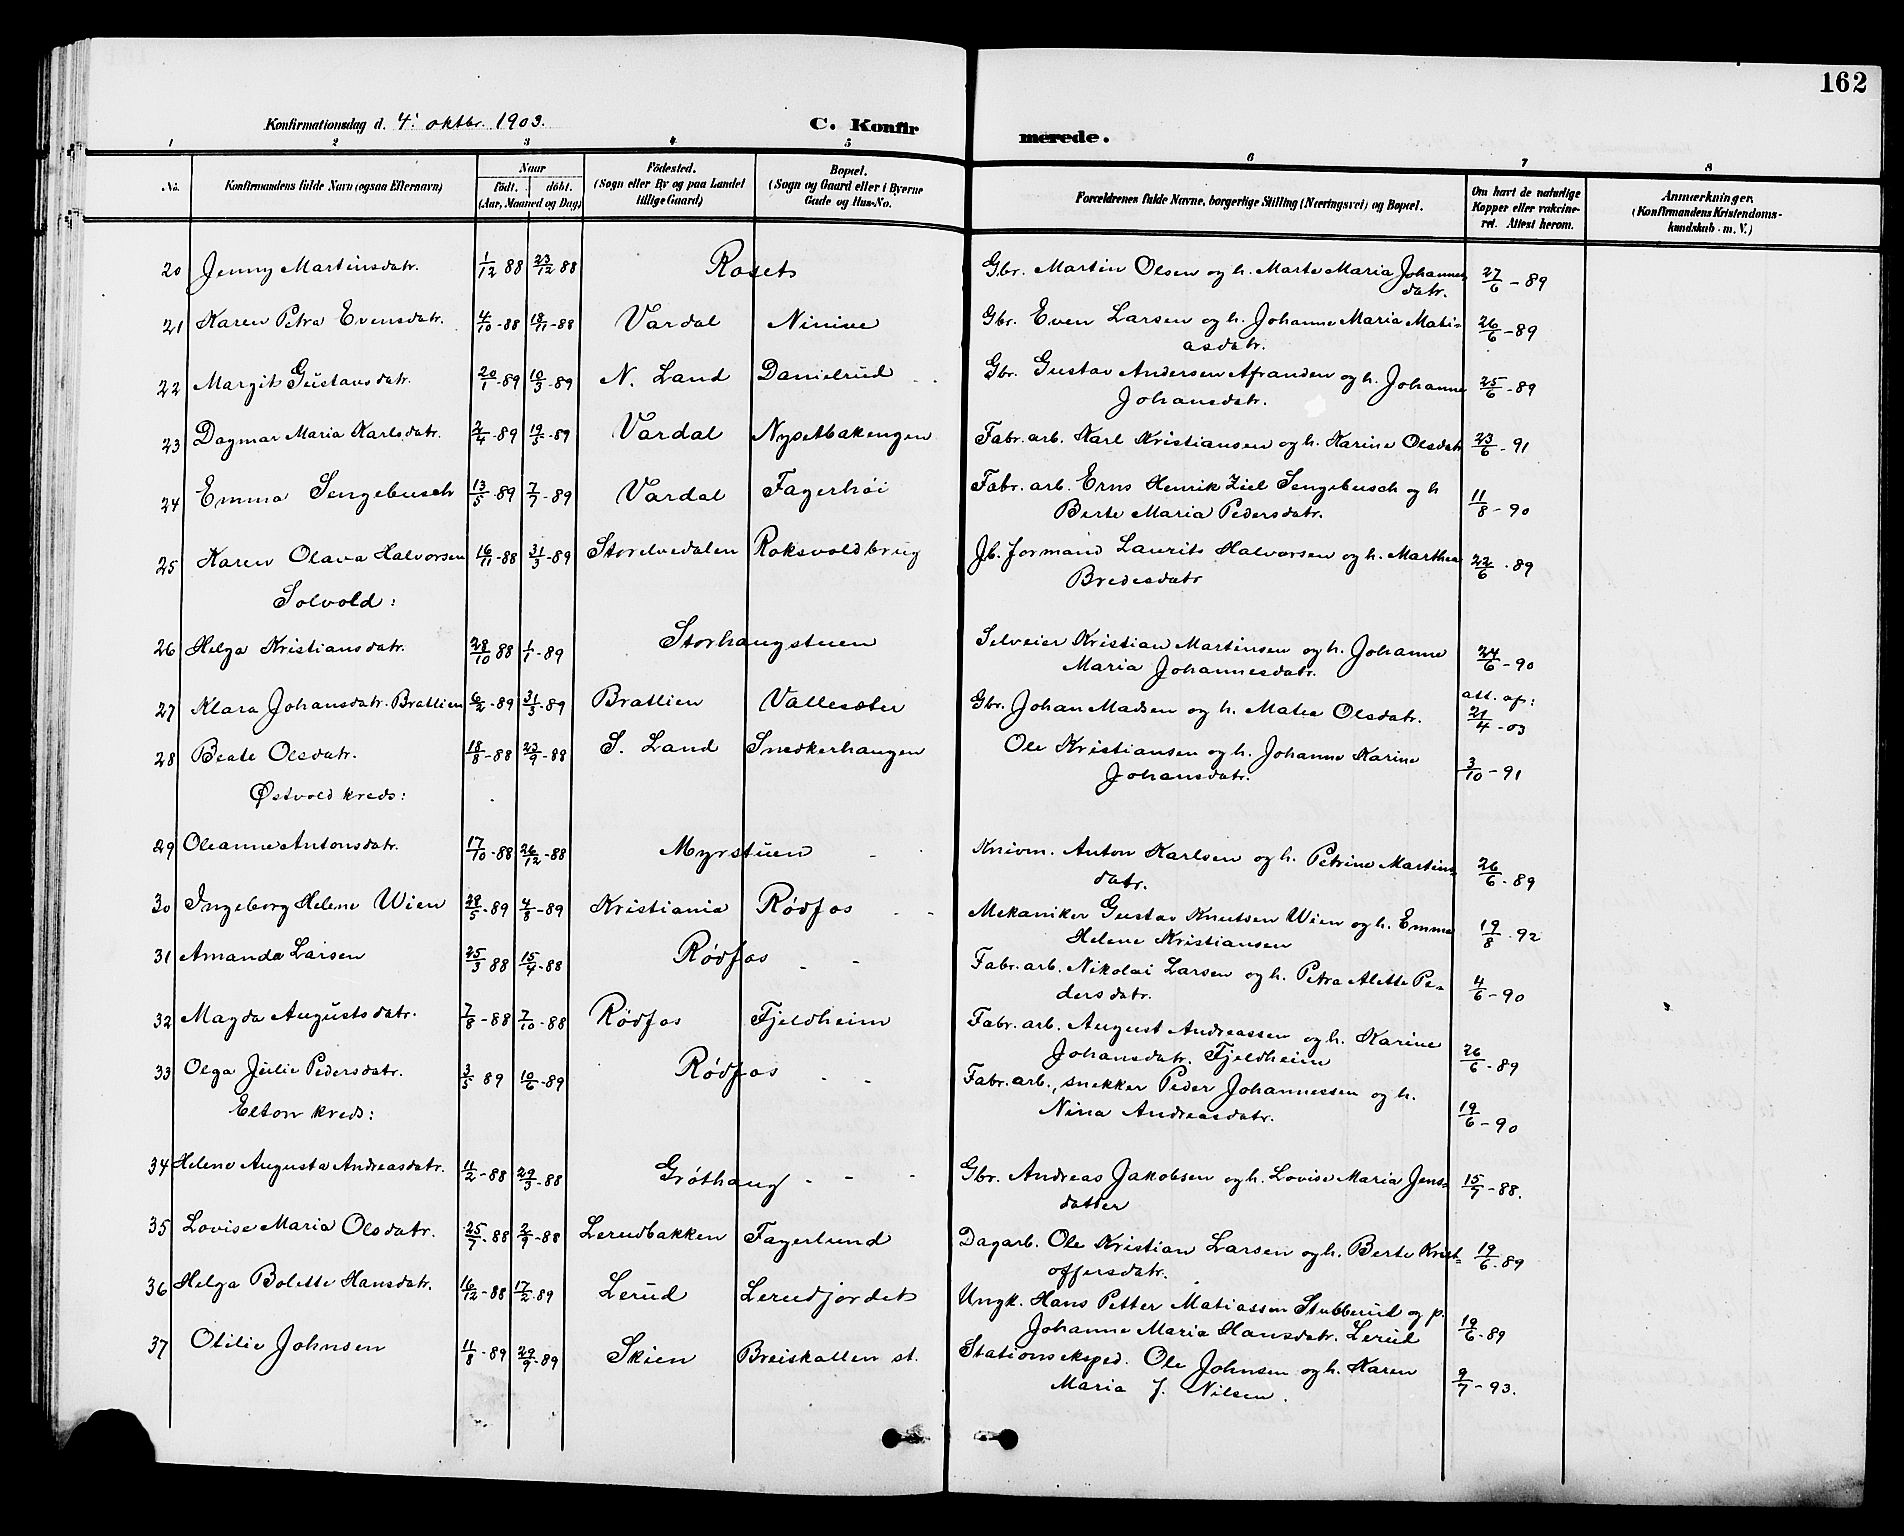 162
Konfirmationsdag d. 4' oktbr. 1903.
C. Konfirmerede.
1 2 3 4 5 6 7 8
No.
Konfirmandens fulde Navn (ogsaa Efternavn)
Naar
født. døbt.
(Aar, Maaned og Dag)
Födested.
(Sogn eller By og paa Landet
tillige Gaard)
Bopæl.
(Sogn og Gaard eller i Byerne
Gade og Hus-No.
Forældrenes fulde Navne, borgerlige Stilling (Næringsvei) og Bopæl.
Om havt de naturlige
Kopper eller vakcine-
ret. Attest herom.
Anmærkninger.
(Konfirmandens Kristendoms-
kundskab m. V.)
20 Jenny Martinsdatr. 1/12 88 23/12 88 Roset Gbr. Martin Olsen og h. Marte Maria Johannes 27/6 - 89
datr.
21 Karen Petra Evensdatr. 4/10 - 88 18/11 - 88 Vardal Ninive Gbr. Even Larsen og h. Johanne Maria Mati- 26/6 - 89
asdatr.
22 Margit Gustavsdatr. 20/1 - 89 10/3 - 89 N. Land Danielrud Gbr. Gustav Andersen Afranden og h. Johanne 25/6 - 89
Johansdatr.
23 Dagmar Maria Karlsdatr. 2/4 - 89 19/5 - 89 Vardal Nysetbakengen Fabr. arb. Karl Kristiansen og h. Karine Olsdatr 23/6 - 91
24 Emma Sengebusch 13/5 - 89 7/7 - 89 Vardal Fagerhöi Fabr. arb. Erns Henrik Ziel Sengebusch og h
Berte Maria Pedersdatr. 11/8 - 90
25 Karen Olava Halvorsen 16/11 - 88 31/3 - 89 Storelvedalen Roksvoldbrug Jb. formand Laurits Halvorsen og h. Marthea 22/6 - 89
Bredesdatr
Solvold:
26 Helga Kristiansdatr. 28/10 88 1/1 - 89 Storhaugstuen Selveier Kristian Martinsen og h. Johanne 24/6 - 90
Maria Johannesdatr.
27 Klara Johansdatr. Bratlien 6/2 - 89 31/3 - 89 Bratlien Vallesæter Gbr. Johan Madsen og h. Matea Olsdatr. att. af: 21/4 - 03
28 Beate Olsdatr. 18/8 - 88 23/9 - 88 S. Land Snedkerhaugen Ole Kristiansen og h. Johanne Karine 3/10 - 91
Johansdatr.
Østvold kreds:
29 Oleanne Antonsdatr. 17/10 - 88 26/12 - 88 Myrstuen Knivm. Anton Karlsen og h. Petrine Martins 26/6 - 89
datr.
30 Ingeborg Helene Wien 28/5 - 89 4/8 - 89 Kristiania Rødfos Mekaniker Gustav Knutsen Wien og h. Emma 19/8 - 92
Helene Kristiansen
31 Amanda Larsen 25/3 88 15/4 - 88 Rødfos Fabr. arb. Nikolai Larsen og h. Petra Alette Pe- 4/6 - 90
dersdatr.
32 Magda Augustsdatr. 7/8 - 88 7/10 - 88 Rødfos Fjeldheim Fabr. arb. August Andreassen og h. Karine
Johansdatr. Fjeldheim 26/6 - 89
33 Olga Julie Pedersdatr. 3/5 89 10/6 - 89 Rødfos Fabr. arb., snekker Peder Johannessen og h.
Nina Andreasdatr. 19/6 - 90
Elton kreds:
34 Helene Augusta Andreasdatr. 11/2 - 88 29/3 - 88 Gróthaug Gbr. Andreas Jakobsen og h. Lovise Maria Jens- 15/7 - 88.
datter
35 Lovise Maria Olsdatr. 25/7 - 88 2/9 - 88 Lerudbakken Fagerlund Dagarb. Ole Kristian Larsen og h. Berte Krist- 19/6 - 89
offersdatr.
36 Helga Bolette Hansdatr. 16/12 - 88 17/2 - 89 Lerud Lerudjordet Ungk. Hans Petter Matiassen Stubberud og p.
Johanne Maria Hansdatr. Lerud 19/6 - 89
37 Otilie Johnsen 11/8 - 89 29/9 - 89 Skien Breiskallen st. Stationseksped. Ole Johnsen og h. Karen
Maria J. Nilsen. 9/7 - 93.